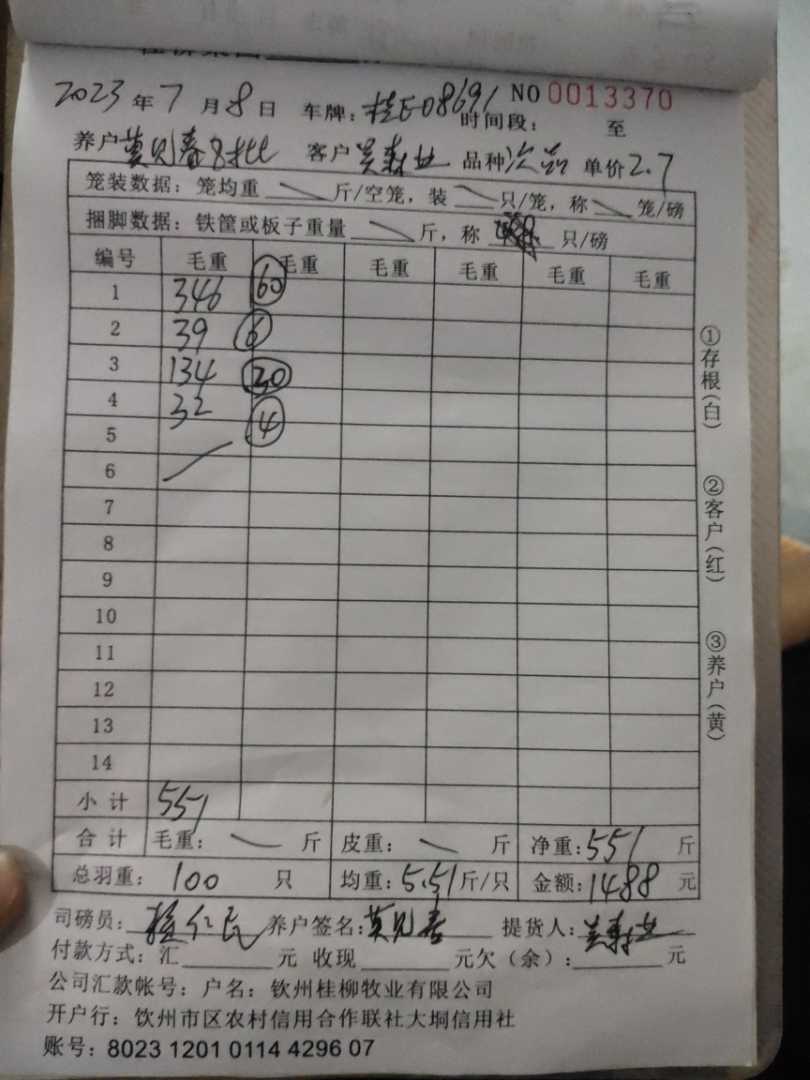 NO 0013370
2023年7月8日 车牌：桂E08691 时间段： 至
养户 莫见春 客户 吴森业 品种 次品 单价 2.7
笼装数据：笼均重 斤/空笼，装 只/笼，称 笼/磅
捆脚数据：铁筐或板子重量 斤，称 只/磅
编号 毛重 毛重 毛重 毛重 毛重 毛重
1 346 60
2 39 6
3 134 30
4 32 4
5
6
7
8
9
10
11
12
13
14
小计 551
合计 毛重： 斤 皮重： 斤 净重：551 斤
总羽重：100 只 均重：5.51斤/只 金额：1488元
司磅员： 养户签名：莫见春 提货人：吴森业
付款方式：汇 元 收现 元欠（余）： 元
公司汇款帐号：户名：钦州桂柳牧业有限公司
开户行：饮州市区农村信用合作联社大垌信用社
账号：8023 1201 0114 4296 07
①存根（白）
②客户（红）
③养户（黄）